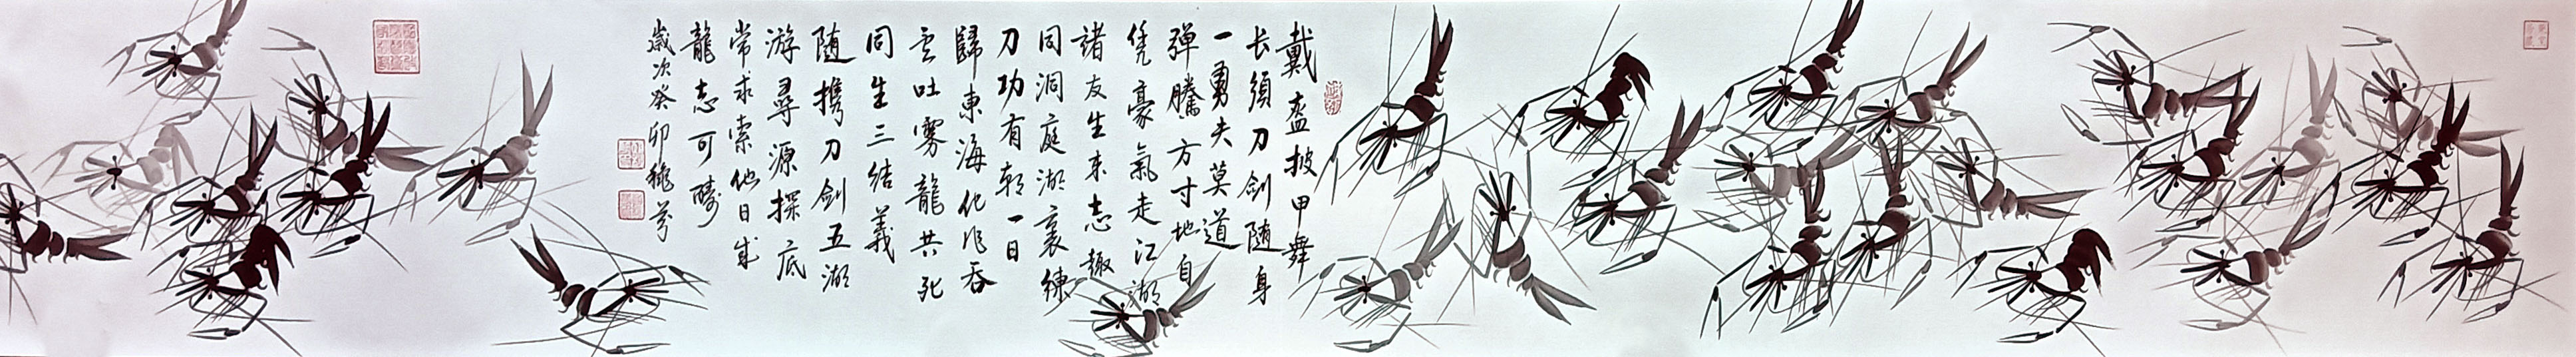 戴盔披甲舞
长须刀剑随身
一勇夫莫道
弹腾方寸地自
凭豪氣走江湖
诸友生来志趣
同洞庭湖裏練
刀功有朝一日
歸東海化作吞
云吐雾龍共死
同生三结義
随携刀剑五湖
游尋源探底
常求索他日成
龍志可酬
歲次癸卯